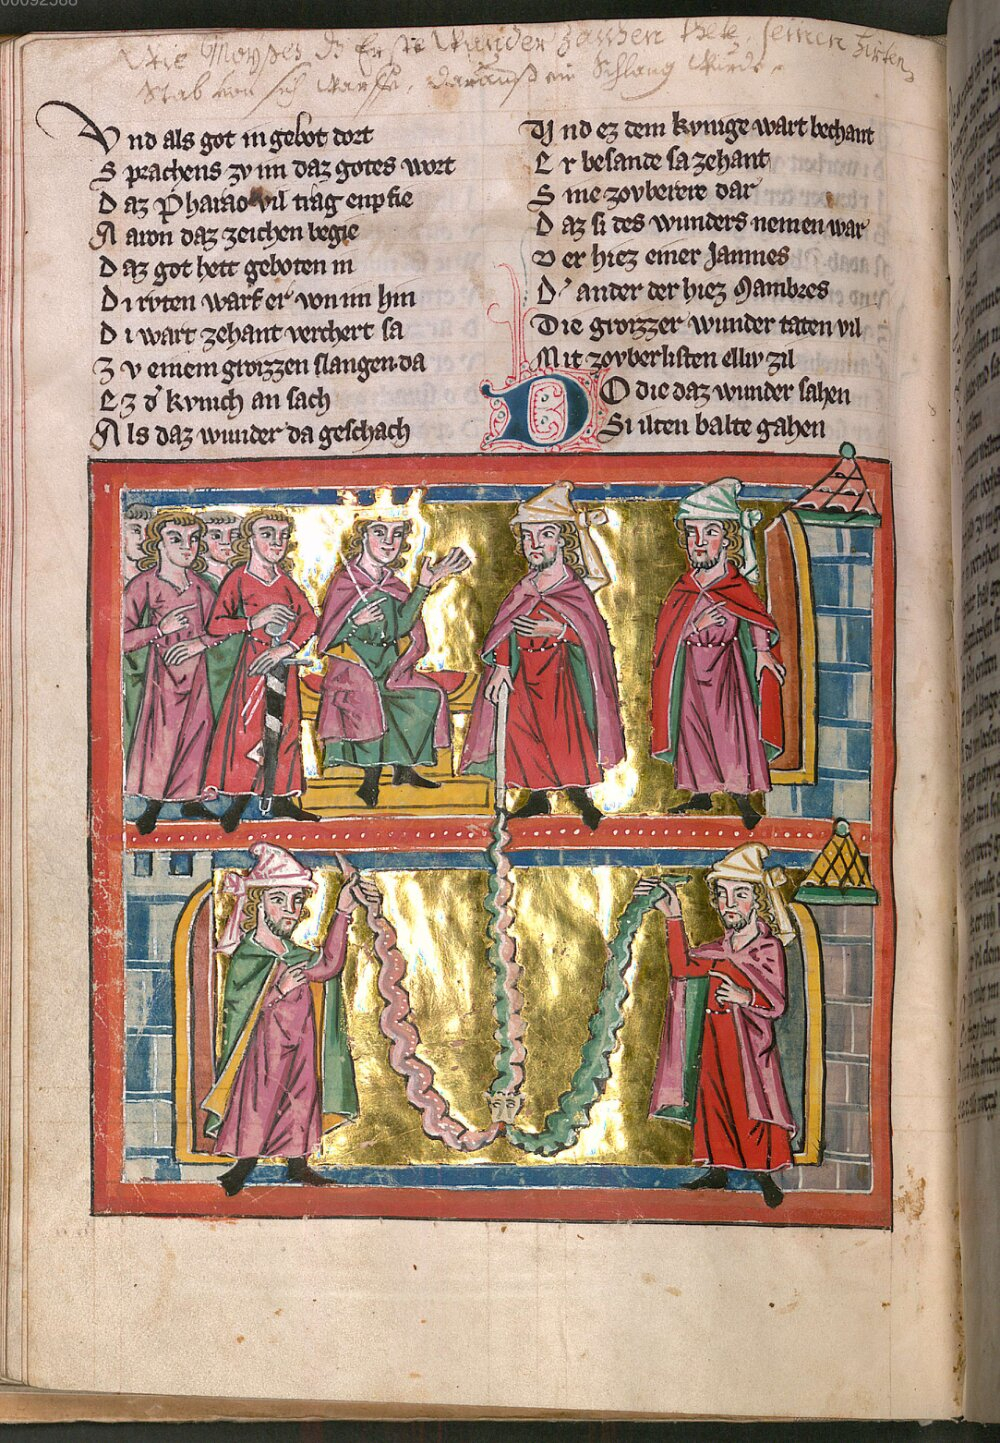 00092588
Wie Moyses dz Erste Wunder Zaichen thete, seinen Hirten
Stab von sich Warffe, darauß ein Schlang Wurde.
Vnd als got in gebot dort
Sprachens zv im daz gotes wort
Daz Pharao vil trag enpfie
Aaron daz zeichen begie
Daz got hett geboten in
Di rvten warf er von im hin
Di wart zehant verchert sa
Zv einem groizzen slangen da
Ez d' kvnich an sach
Als daz wunder da geschach
Vnd ez dem kvnige wart bechant
Er besande sa zehant
Sine zovberere dar
Daz si des wunders nemen war
Der hiez einer Jannes
D' ander der hiez Mambres
Die groizzer wunder taten vil
Mit zovberlisten elliv zil
DO die daz wunder sahen
Si ilten balte gahen